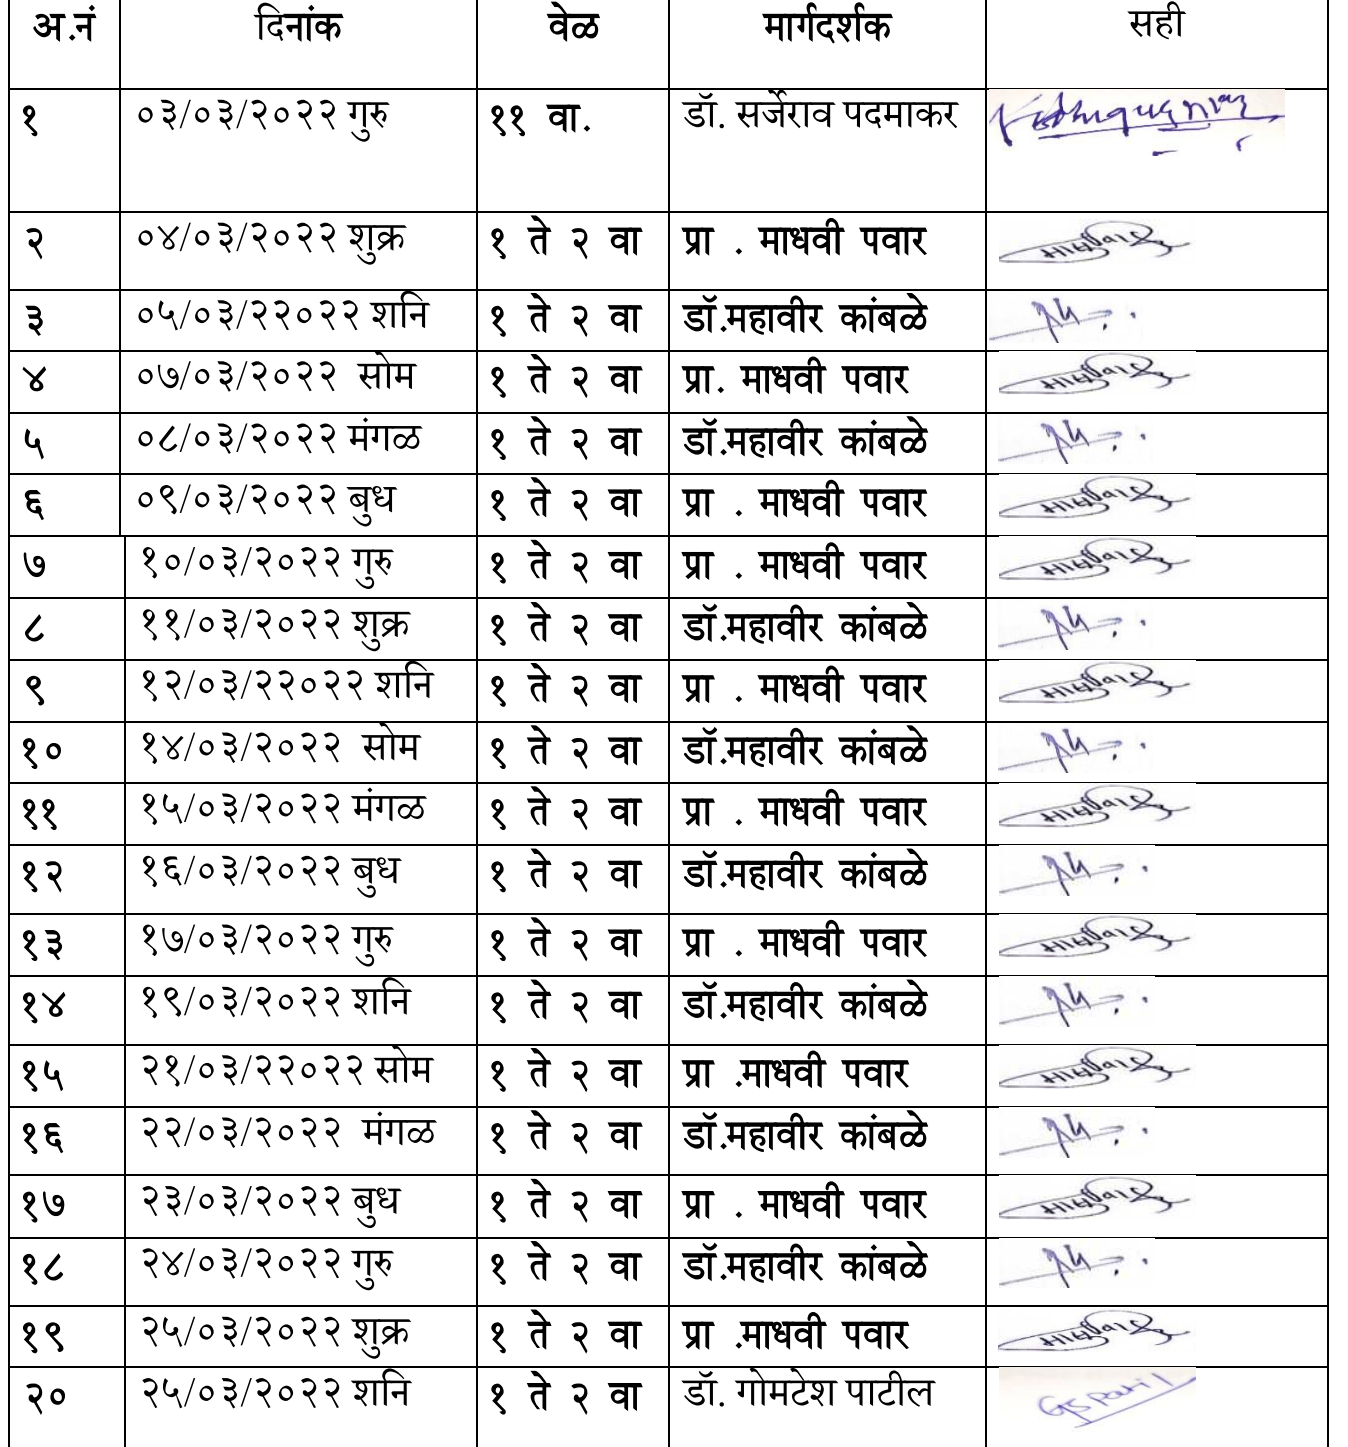 अ.नं दिनांक वेळ मार्गदर्शक सही
१ ०३/०३/२०२२ गुरु ११ वा. डॉ. सर्जेराव पदमाकर
२ ०४/०३/२०२२ शुक्र १ ते २ वा प्रा . माधवी पवार
३ ०५/०३/२२०२२ शनि १ ते २ वा डॉ.महावीर कांबळे
४ ०७/०३/२०२२ सोम १ ते २ वा प्रा. माधवी पवार
५ ०८/०३/२०२२ मंगळ १ ते २ वा डॉ.महावीर कांबळे
६ ०९/०३/२०२२ बुध १ ते २ वा प्रा . माधवी पवार
७ १०/०३/२०२२ गुरु १ ते २ वा प्रा . माधवी पवार
८ ११/०३/२०२२ शुक्र १ ते २ वा डॉ.महावीर कांबळे
९ १२/०३/२२०२२ शनि १ ते २ वा प्रा . माधवी पवार
१० १४/०३/२०२२ सोम १ ते २ वा डॉ.महावीर कांबळे
११ १५/०३/२०२२ मंगळ १ ते २ वा प्रा . माधवी पवार
१२ १६/०३/२०२२ बुध १ ते २ वा डॉ.महावीर कांबळे
१३ १७/०३/२०२२ गुरु १ ते २ वा प्रा . माधवी पवार
१४ १९/०३/२०२२ शनि १ ते २ वा डॉ.महावीर कांबळे
१५ २१/०३/२२०२२ सोम १ ते २ वा प्रा .माधवी पवार
१६ २२/०३/२०२२ मंगळ १ ते २ वा डॉ.महावीर कांबळे
१७ २३/०३/२०२२ बुध १ ते २ वा प्रा . माधवी पवार
१८ २४/०३/२०२२ गुरु १ ते २ वा डॉ.महावीर कांबळे
१९ २५/०३/२०२२ शुक्र १ ते २ वा प्रा .माधवी पवार
२० २५/०३/२०२२ शनि १ ते २ वा डॉ. गोमटेश पाटील GS Patil